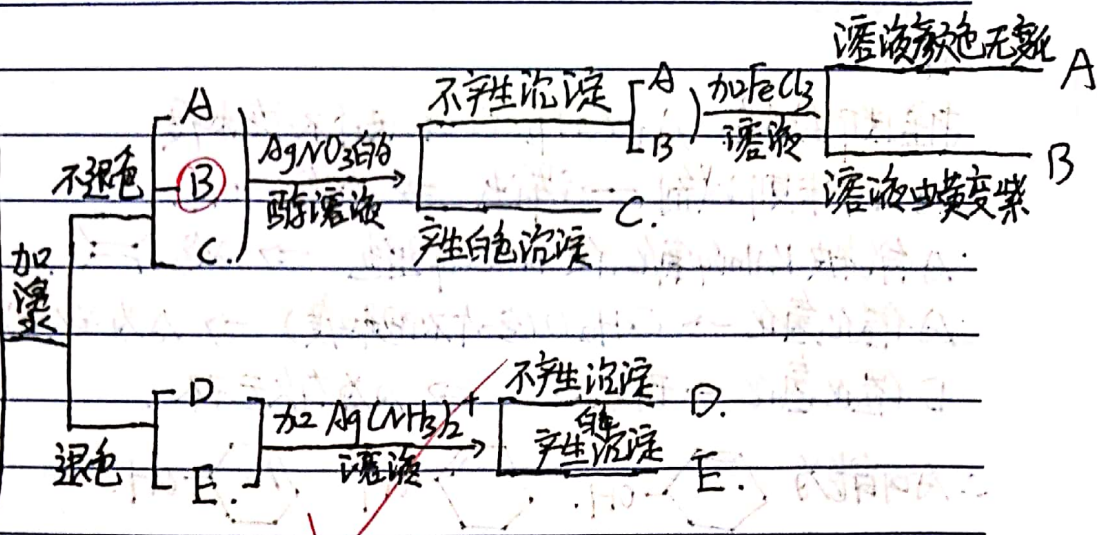 加溴
不退色
A
B
C.
AgNO3的
醇溶液
不产生沉淀
A
B
加FeCl3
溶液
溶液颜色无变化
A
溶液由黄变紫
B
产生白色沉淀
C.
退色
D
E.
加Ag(NH3)2+
溶液.
不产生沉淀
D.
白色
产生沉淀
E.